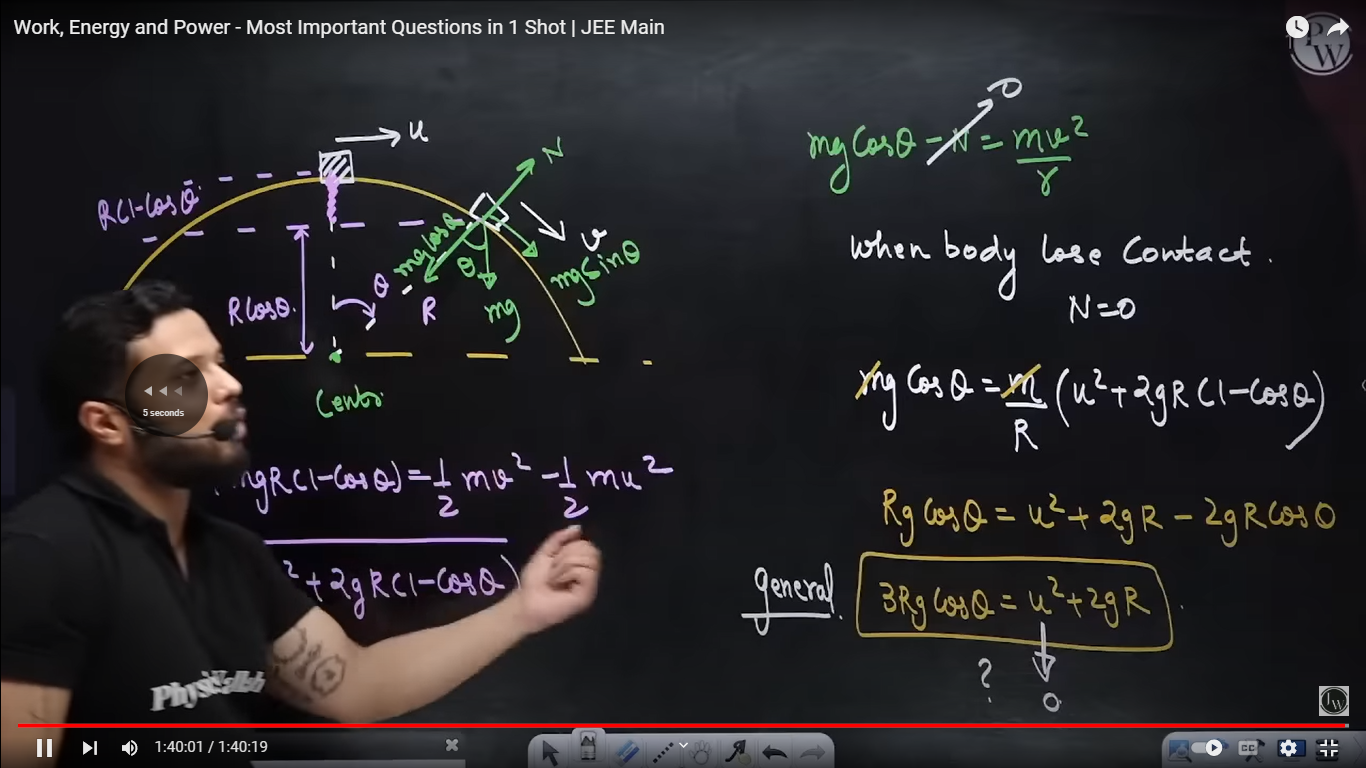 Work, Energy and Power - Most Important Questions in 1 Shot | JEE Main
PW
u
N
R(1-cosθ)
mgcosθ
θ
v
mgsinθ
mg
θ
R
Rcosθ.
mgR(1-cosθ) = 1/2 mv² - 1/2 mu²
² + 2gR(1-cosθ)
mg cosθ - N = mv²/r
0
when body lose contact.
N=0
mg cosθ = m/R (u² + 2gR(1-cosθ)
Rg cosθ = u² + 2gR - 2gR cosθ
general.
3Rg cosθ = u² + 2gR
?
0
5 seconds
1:40:01 / 1:40:19
CC